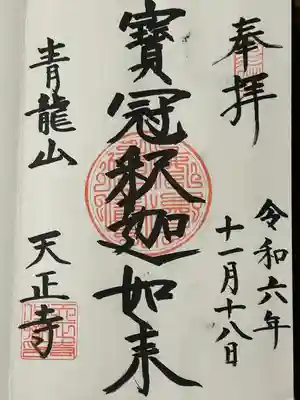 奉拝
令和六年
十一月十八日
寶冠釈迦如来
青龍山 天正寺